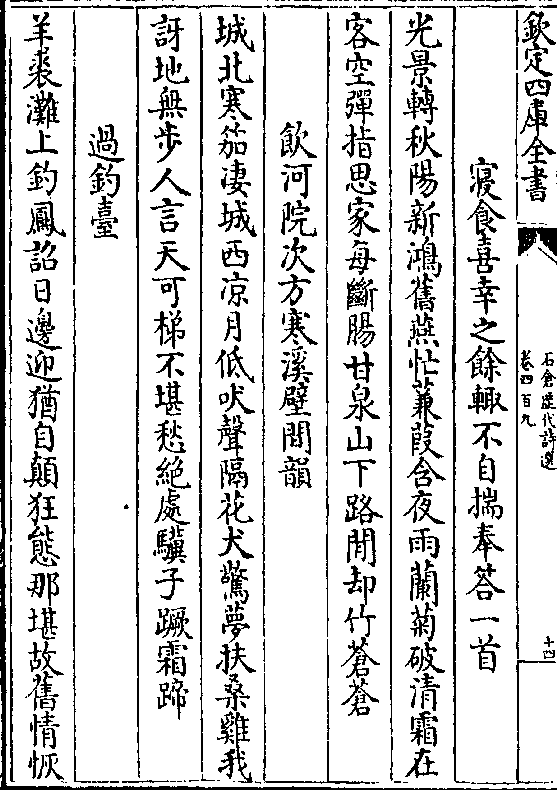 欽定四庫全書
石倉歷代詩選
卷四百九
十四
寢食喜幸之餘輙不自揣奉答一首
光景轉秋陽新鴻舊燕忙蒹葭含夜雨蘭菊破清霜在
客空彈指思家每斷腸甘泉山下路閒却竹蒼蒼
飲河院次方寒溪壁間韻
城北寒笳凄城西凉月低吠聲隔花犬驚夢扶桑雞我
訝地無步人言天可梯不堪愁絕處驥子蹶霜蹄
過釣臺
羊裘灘上釣鳳詔日邊迎猶自顛狂態那堪故舊情恢